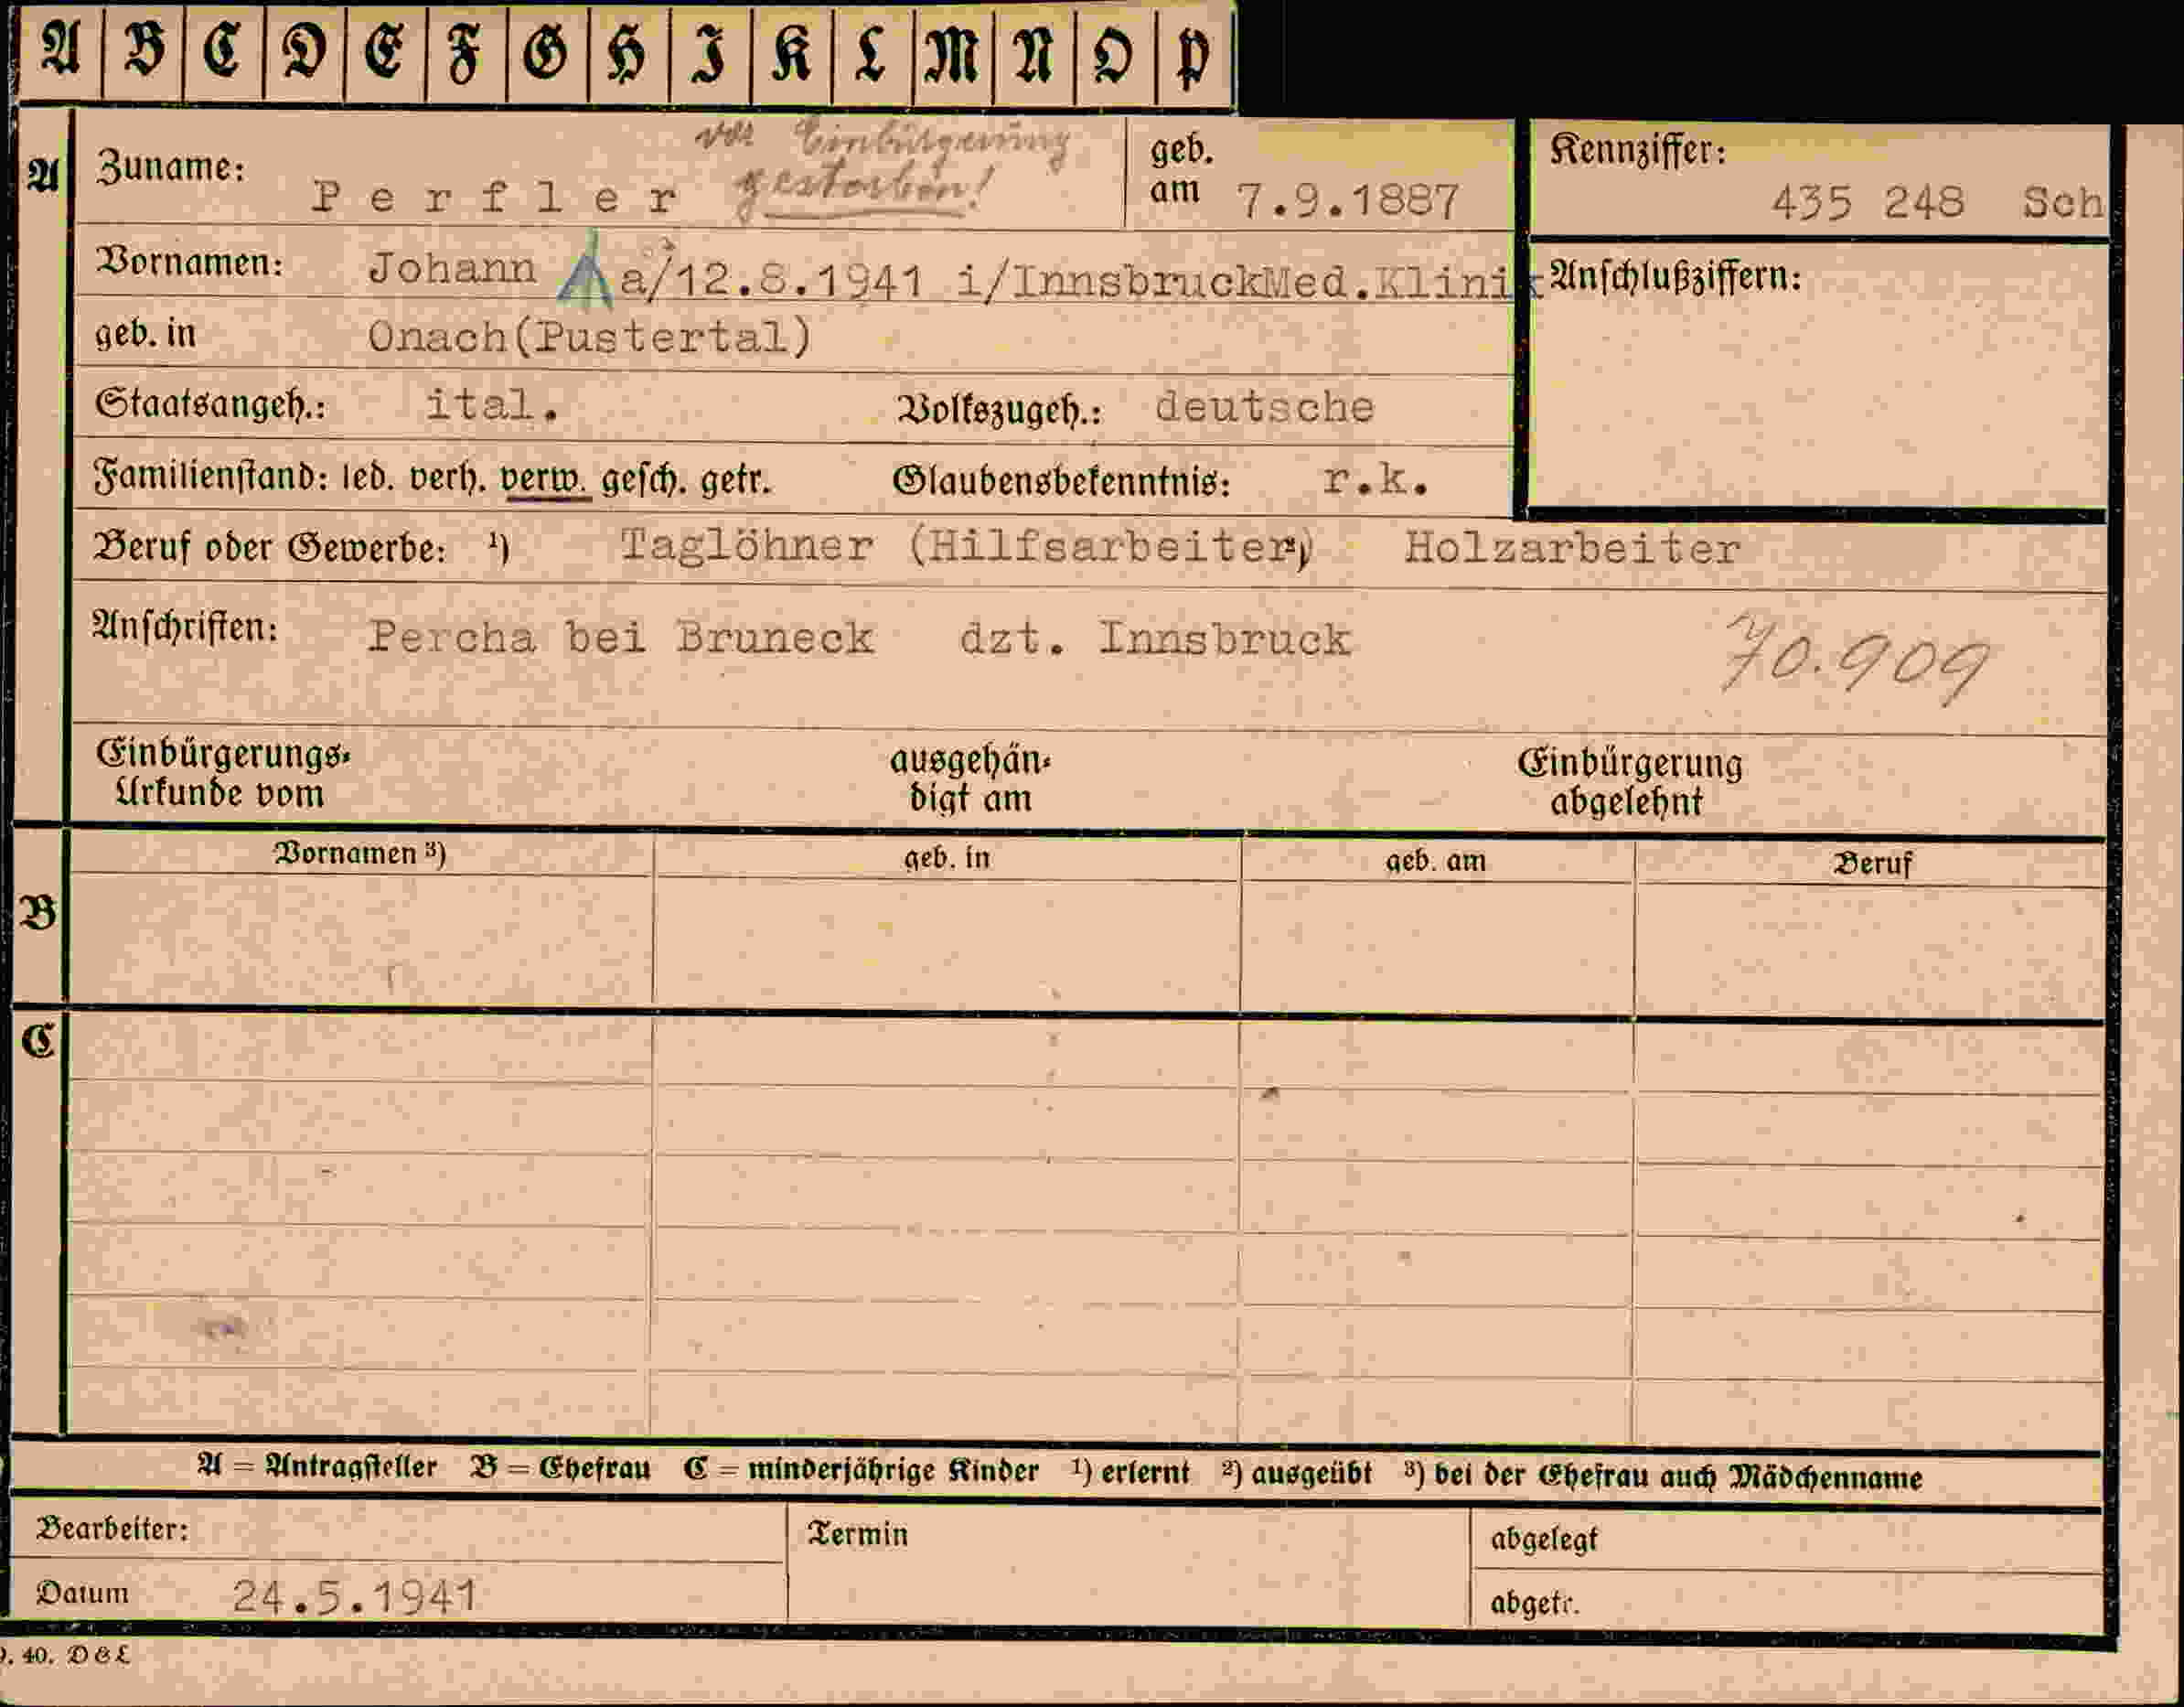 A B C D E F G H I K L M N O P
vor Einbürgerung
A Zuname: Perfler gestorben! geb. am 7.9.1887 Kennziffer: 435 248 Sch
Vornamen: Johann a/12.8.1941 i/InnsbruckMed.Klinik Anschlußziffern:
geb. in Onach(Pustertal)
Staatsangeh.: ital. Volkszugeh.: deutsche
Familienstand: led. verh. verw. gesch. getr. Glaubensbekenntnis: r.k.
Beruf oder Gewerbe: ¹) Taglöhner (Hilfsarbeiter) Holzarbeiter
Anschriften: Percha bei Bruneck dzt. Innsbruck 70.909
Einbürgerungs- ausgehän- Einbürgerung
Urkunde vom digt am abgelehnt
Vornamen ³) geb. in geb. am Beruf
B
C
A = Antragsteller B = Ehefrau C = minderjährige Kinder ¹) erlernt ²) ausgeübt ³) bei der Ehefrau auch Mädchenname
Bearbeiter: Termin abgelegt
Datum 24.5.1941 abgetr.
40. D & L